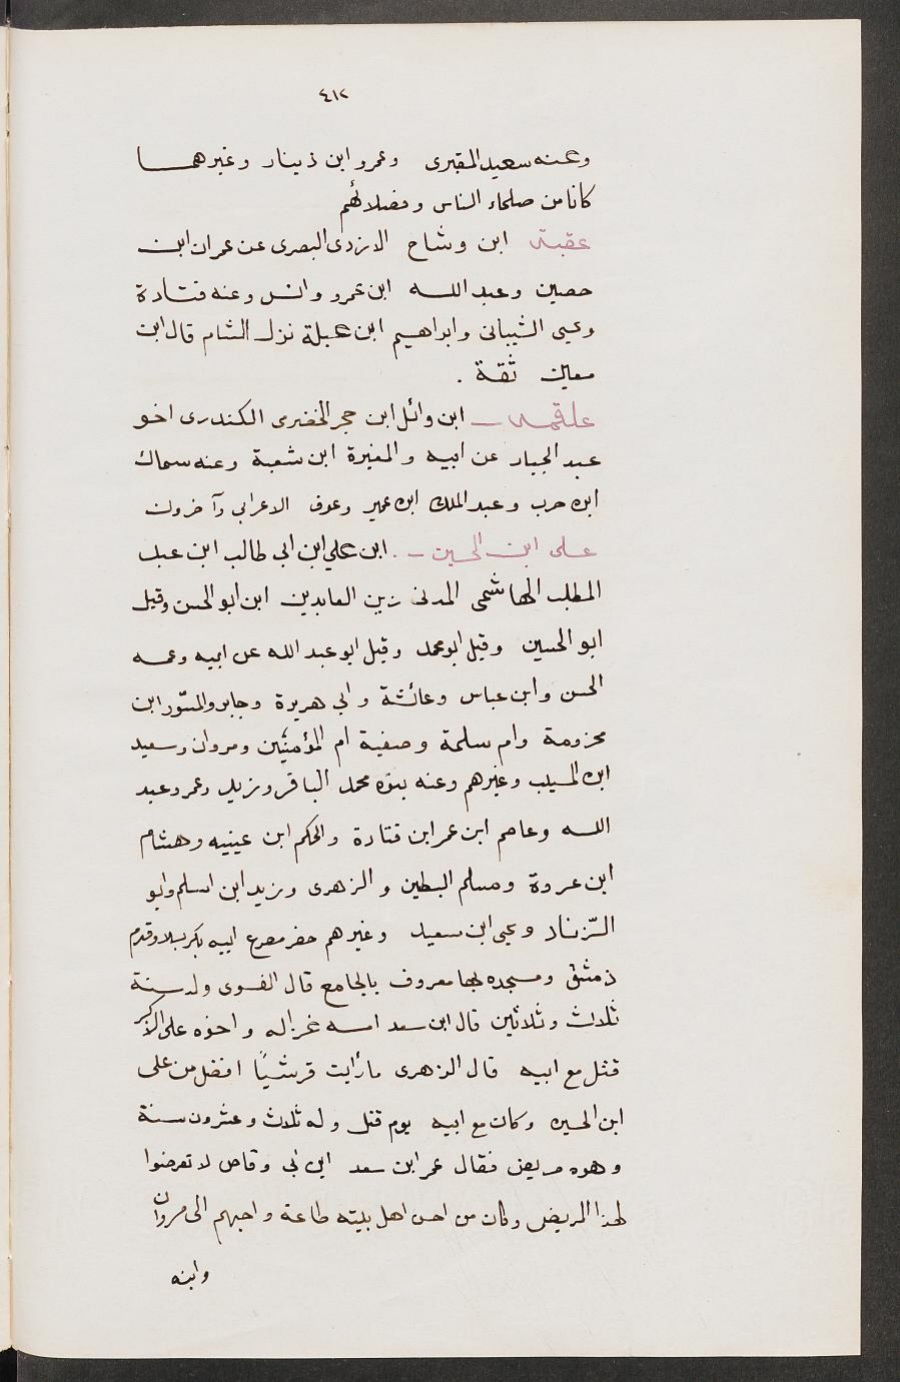 ٤١٢
وعنه سعيد المقبرى وعمرو ابن ذينار وغيرهما
كانا من صلحاء الناس وفضلائهم
عقبة ابن وشاح الازدى البصرى عن عمران ابن
حصين وعبد الله ابن عمرو وانس وعنه قتادة
ويحيى الشيبانى وابراهيم ابن عبلة نزل الشام قال ابن
معين ثقة .
علقمه ابن وائل ابن حجر الحضرى الكندرى اخو
عبد الجبار عن ابيه والمغيرة ابن شعبة وعنه سماك
ابن حرب وعبد الملك ابن عمير وعوف الاعرابى وآخرون
على ابن الحسين . ابن علي ابن ابى طالب ابن عبد
المطلب الهاشمى المدنى زين العابدين ابن ابو الحسن وقيل
ابو الحسين وقيل ابو محمد وقيل ابو عبد الله عن ابيه وعمه
الحسن وابن عباس وعائشة وابى هريرة وجابر والمسّور ابن
مخزومة وام سلمة وصفية ام المؤمنين ومروان وسعيد
ابن المسيب وغيرهم وعنه بنوه محمد الباقر وزيد وعمر وعبد
الله وعاصم ابن عمر ابن قتادة والحكم ابن عيينه وهشام
ابن عروة ومسلم البطين والزهرى وزيد ابن اسلم وابو
الزّناد ويحيى ابن سعيد وغيرهم حضر مصرع ابيه بكربلا وقدم
ذمشق ومسجده بها معروف بالجامع قال الفسوى ولد سنة
ثلاث وثلاثين قال ابن سعد امه غزاله واخوه على الاكبر
قتل مع ابيه قال الزهرى ما رأيت قرشيًا افضل من على
ابن الحسين وكان مع ابيه يوم قتل وله ثلاث وعشرون سنة
وهوه مريض فقال عمر ابن سعد ابن ابى وقاص لا تعرضوا
لهذا المريض وكان من احسن اهل بيته طاعة واحبهم الى مروان
وابنه